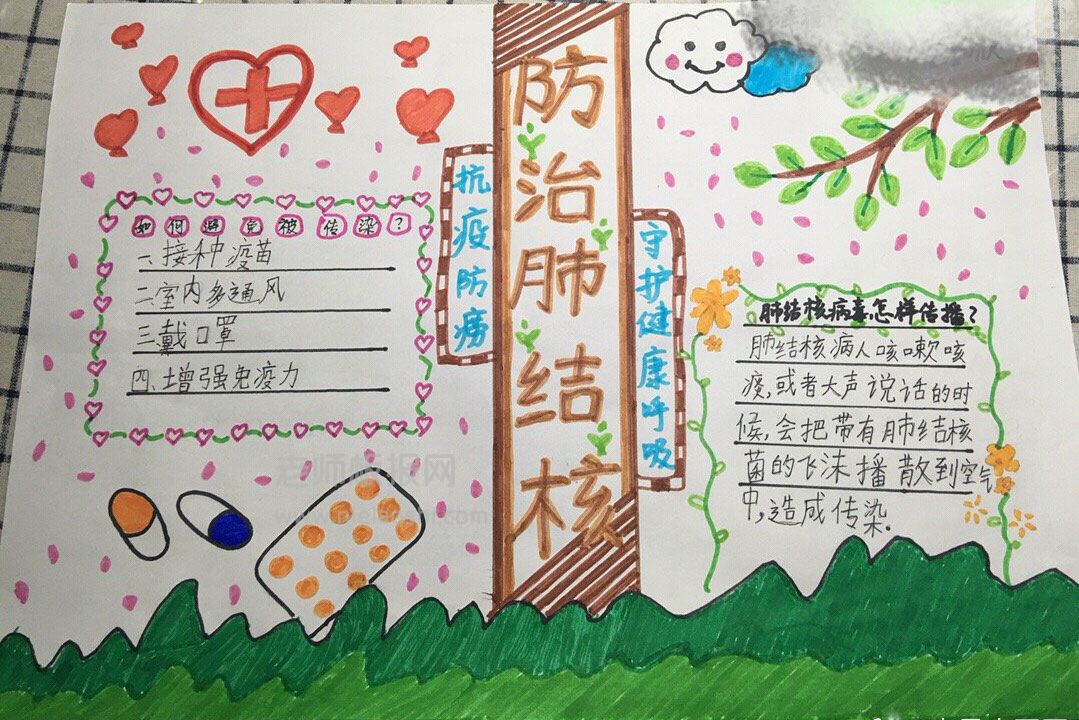 防治肺结核
抗疫防痨
守护健康呼吸
如何避免被传染?
一、接种疫苗
二.室内多通风
三.戴口罩
四.增强免疫力
肺结核病毒怎样传播?
肺结核病人咳嗽咳
疫,或者大声说话的时
候,会把带有肺结核
菌的飞沫播散到空气
中,造成传染.
老师板报网